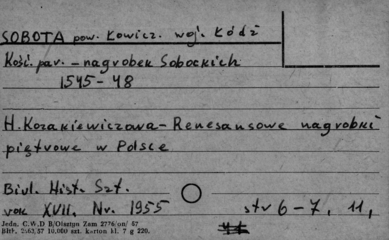 SOBOTA pow. Łowicz. woj. Łódź
Kość. par. - nagrobek Sobockich
1545-48
H. Kozakiewiczowa - Renesansowe nagrobki
piętrowe w Polsce
Biul. Hist. Szt.
rok XVII. Nr. 1955
str 6-7, 11,
Jedn. C.W.D B/Olsztyn Zam 2776/on/ 57
10.000 szt. karton kl. 7 g 220.